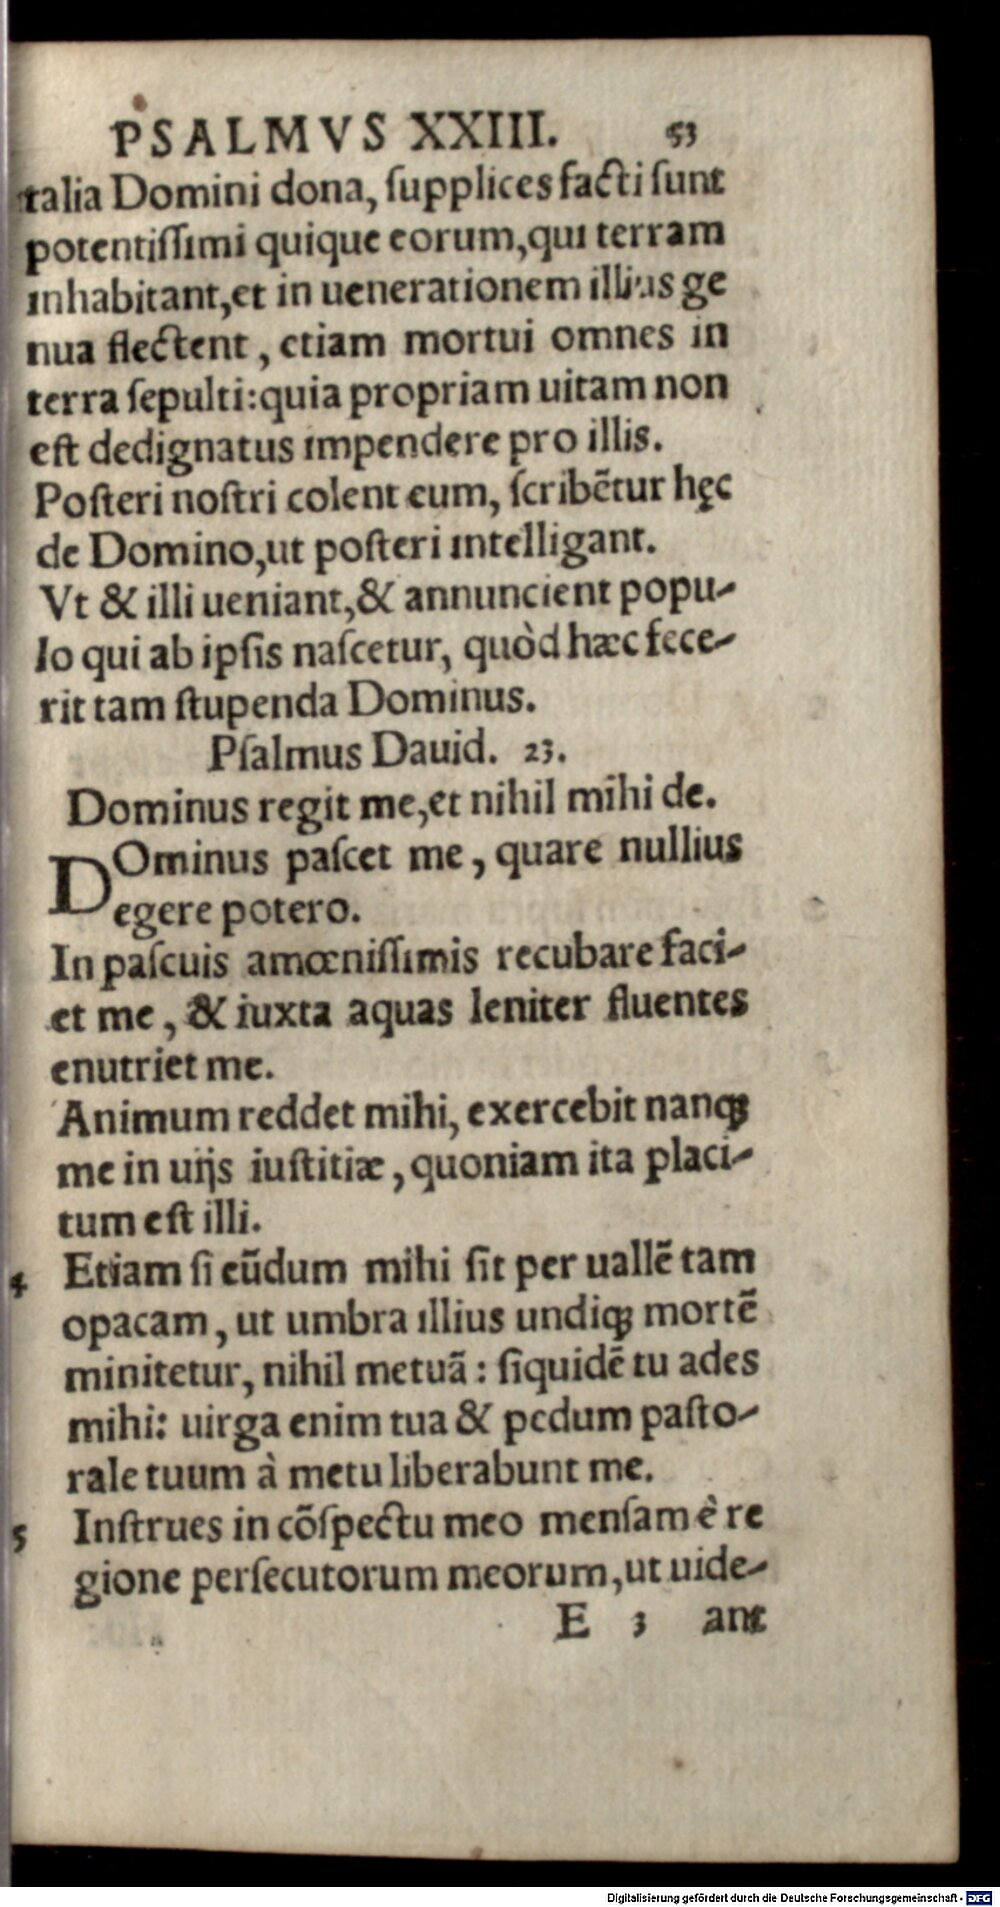 PSALMVS XXIII. 53
talia Domini dona, ſupplices facti ſunt
potentiſſimi quique eorum,qui terram
inhabitant,et in uenerationem illius ge
nua flectent , etiam mortui omnes in
terra ſepulti:quia propriam uitam non
eſt dedignatus impendere pro illis.
Poſteri noſtri colent eum, ſcribẽtur hęc
de Domino,ut poſteri intelligant.
Vt & illi ueniant,& annuncient popu-
lo qui ab ipſis naſcetur, quòd hæc fece-
rit tam ſtupenda Dominus.
Pſalmus Dauid. 23.
Dominus regit me,et nihil mihi de.
DOminus paſcet me , quare nullius
egere potero.
In paſcuis amœniſſimis recubare faci-
et me , & iuxta aquas leniter fluentes
enutriet me.
Animum reddet mihi, exercebit nanqꝫ
me in uijs iuſtitiæ , quoniam ita placi-
tum eſt illi.
4 Etiam ſi eũdum mihi ſit per uallẽ tam
opacam , ut umbra illius undiqꝫ mortẽ
minitetur, nihil metuã : ſiquidẽ tu ades
mihi: uirga enim tua & pedum paſto-
rale tuum à metu liberabunt me.
5 Inſtrues in cõſpectu meo menſam è re
gione perſecutorum meorum,ut uide-
E 3 ant
Digitalisierung gefördert durch die Deutsche Forschungsgemeinschaft - DFG